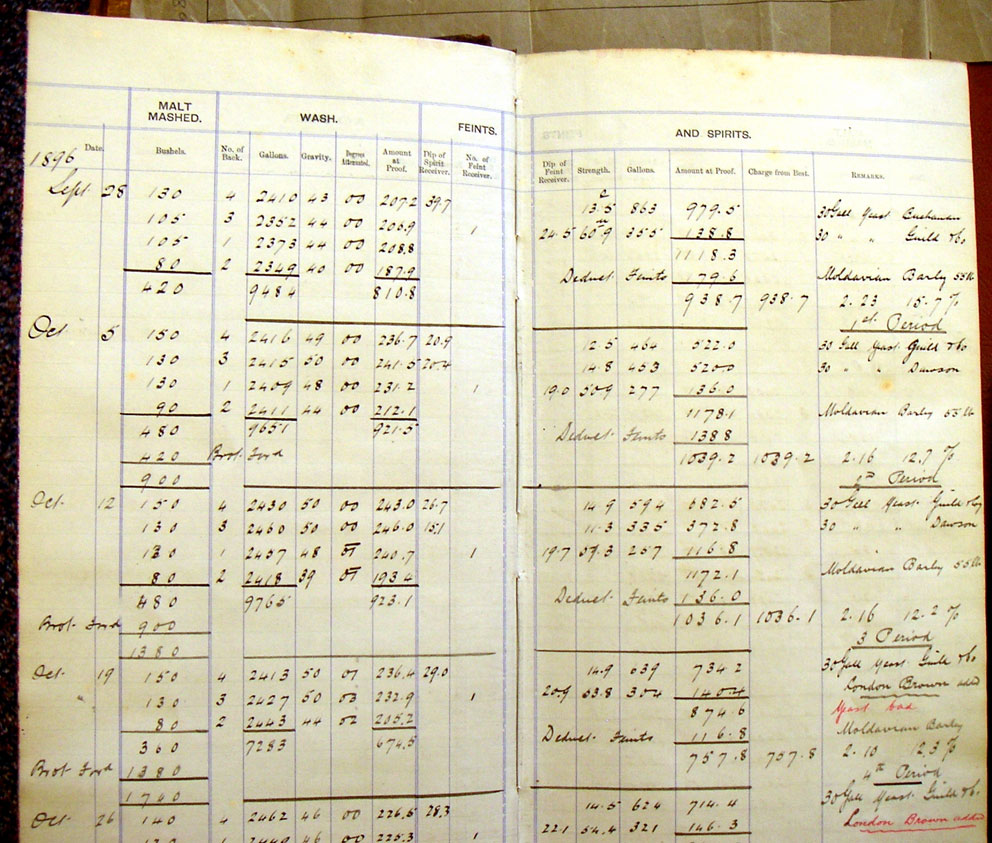 MALT MASHED. WASH. FEINTS. AND SPIRITS.
Date. Bushels. No. of Back. Gallons. Gravity. Degrees Attenuated. Amount at Proof. Dip of Spirit Receiver. No. of Feint Receiver. Dip of Feint Receiver. Strength. Gallons. Amount at Proof. Charge from Best. REMARKS.
1896
Sept 28 130 4 2410 43 00 207.2 39.7 13.5 863 979.5 30 Gall Yeast Buchanan
105 3 2352 44 00 206.9 1 24.5 60.9 355 138.8 30 " " Guild & Co
105 1 2373 44 00 208.8 1118.3
80 2 2349 40 00 187.9 Deduct Feints 79.6 Moldavian Barley 55 lb
420 9484 810.8 938.7 938.7 2.23 15.7 %
1st Period
Oct 5 150 4 2416 49 00 236.7 20.9 12.5 464 522.0 30 Gall Yeast Guild & Co
130 3 2415 50 00 241.5 20.4 14.8 453 520.0 30 " " Dawson
130 1 2409 48 00 231.2 1 19.0 50.9 277 136.0
90 2 2411 44 00 212.1 1178.1 Moldavian Barley 55 lb
480 9651 921.5 Deduct Feints 138.8
420 Brot Ford 1039.2 1039.2 2.16 12.7 %
900 2nd Period
Oct 12 150 4 2430 50 00 243.0 26.7 14.9 594 682.5 30 Gall Yeast Guild & Co
130 3 2460 50 00 246.0 15.1 11.3 335 372.8 30 " " Dawson
130 1 2457 48 01 240.7 1 19.7 57.3 257 116.8
80 2 2418 39 01 193.4 1172.1 Moldavian Barley 55 lb
480 9765 923.1 Deduct Feints 136.0
Brot Ford 900 1036.1 1036.1 2.16 12.2 %
1380 3 Period
Oct 19 150 4 2413 50 01 236.4 29.0 14.9 639 734.2 30 Gall Yeast Guild & Co
130 3 2427 50 03 232.9 1 20.9 53.8 304 140.4 London Brown added
80 2 2443 44 02 205.2 874.6 Yeast bad
360 7283 674.5 Deduct Feints 116.8 Moldavian Barley
Brot Ford 1380 757.8 757.8 2.10 12.3 %
1740 4th Period
Oct 26 140 4 2462 46 00 226.5 28.3 14.5 624 714.4 30 Gall Yeast Guild & Co.
2449 46 00 225.3 1 22.1 54.4 321 146.3 London Brown added